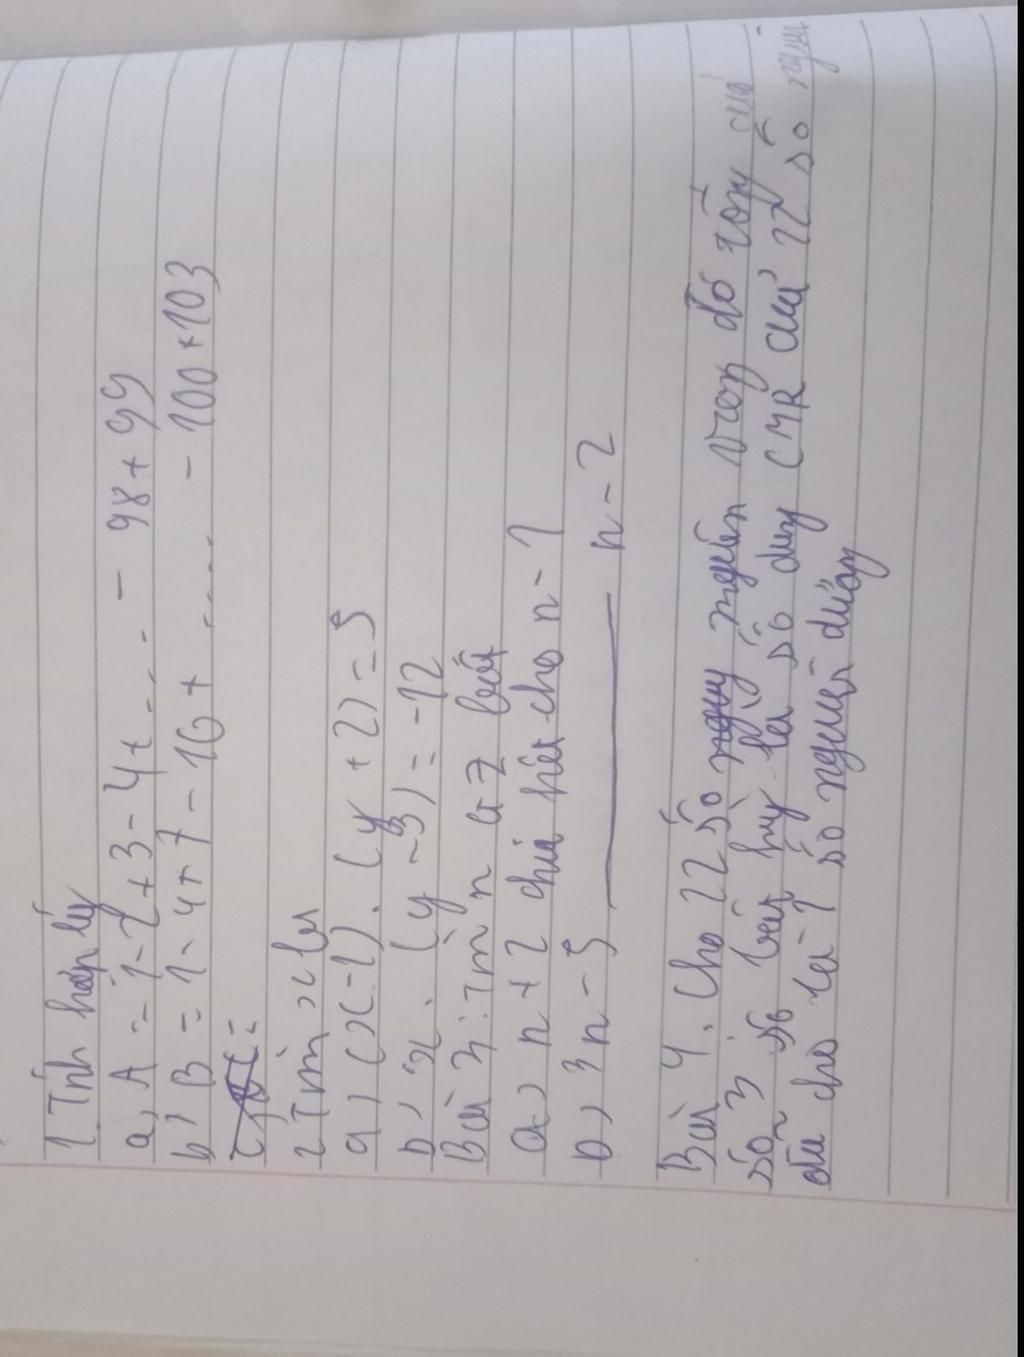 1. Tính hợp lý
a, A = 1 - 2 + 3 - 4 + ... - 98 + 99
b, B = 1 - 4 + 7 - 10 + ..... - 100 + 103
2 Tìm x
a, (x-1). (y + 2) = 5
b, x. (y - 3) = -12
Bài 3: Tìm n ∈ Z biết
a, n + 2 chia hết cho n - 1
b, 3n - 5 ——— n - 2
Bài 4. Cho 22 số nguyên trong đó tổng của
số 3 số bất kỳ là số dương CMR của 22 số nguyên
đã cho là 1 số nguyên dương